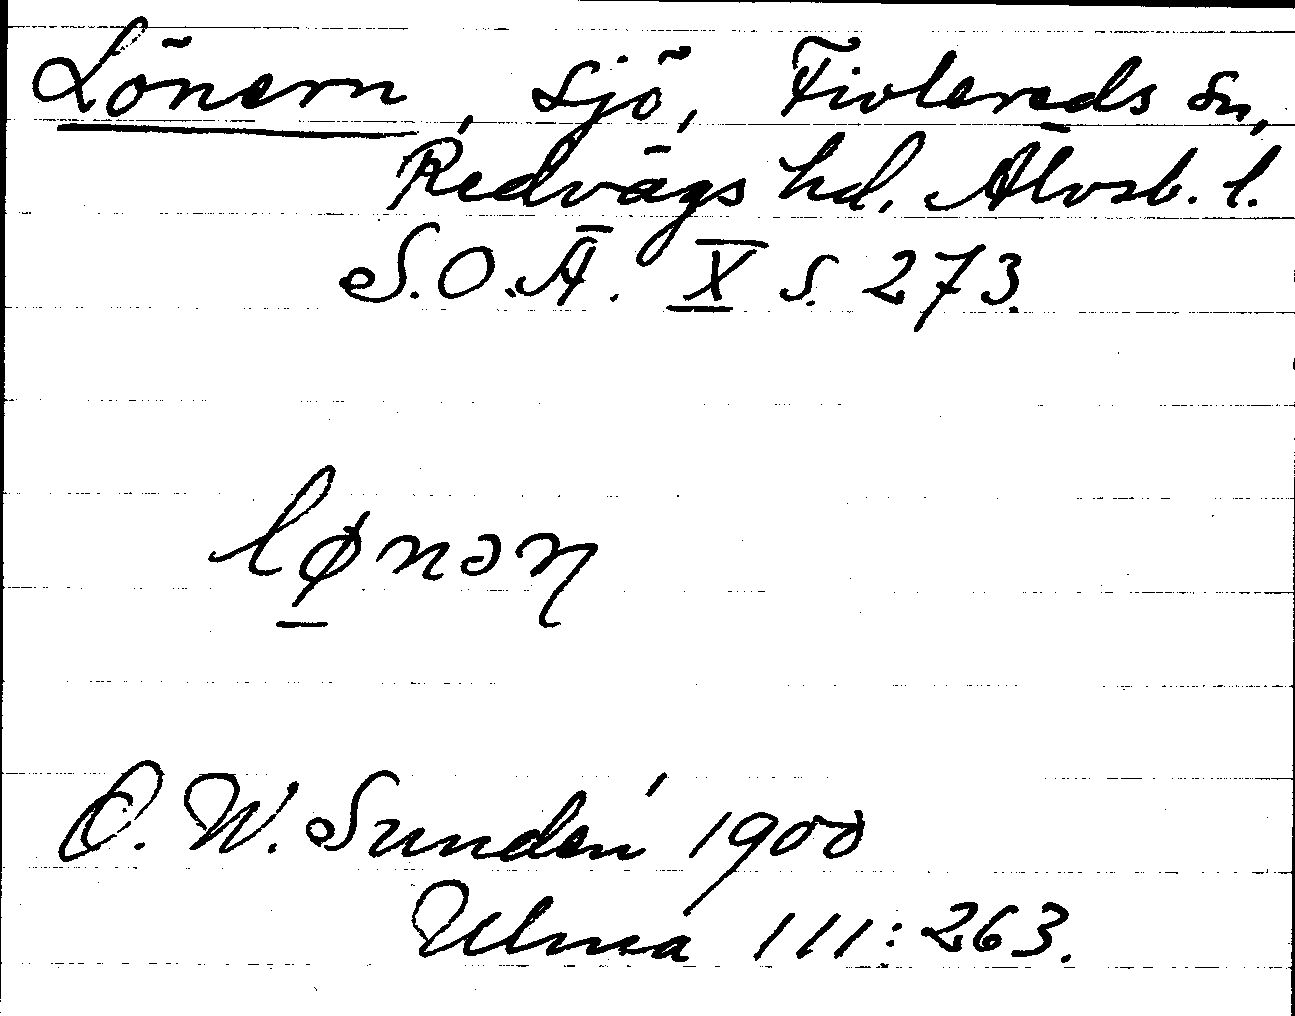 Lönern, sjö, Fivlereds sn,
Redvägs hd. Älvsb. l.
S.O.Ä. X s. 273.
lø̱nəɳ
O. W. Sundén 1900
Ulma 111:263.